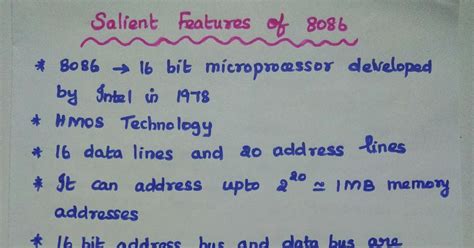 Salient Features of 8086
* 8086 → 16 bit microprocessor developed
by Intel in 1978
* HMOS Technology
* 16 data lines and 20 address lines
* It can address upto 2²⁰ ≃ 1MB memory
addresses
* 16 bit address bus and data bus are